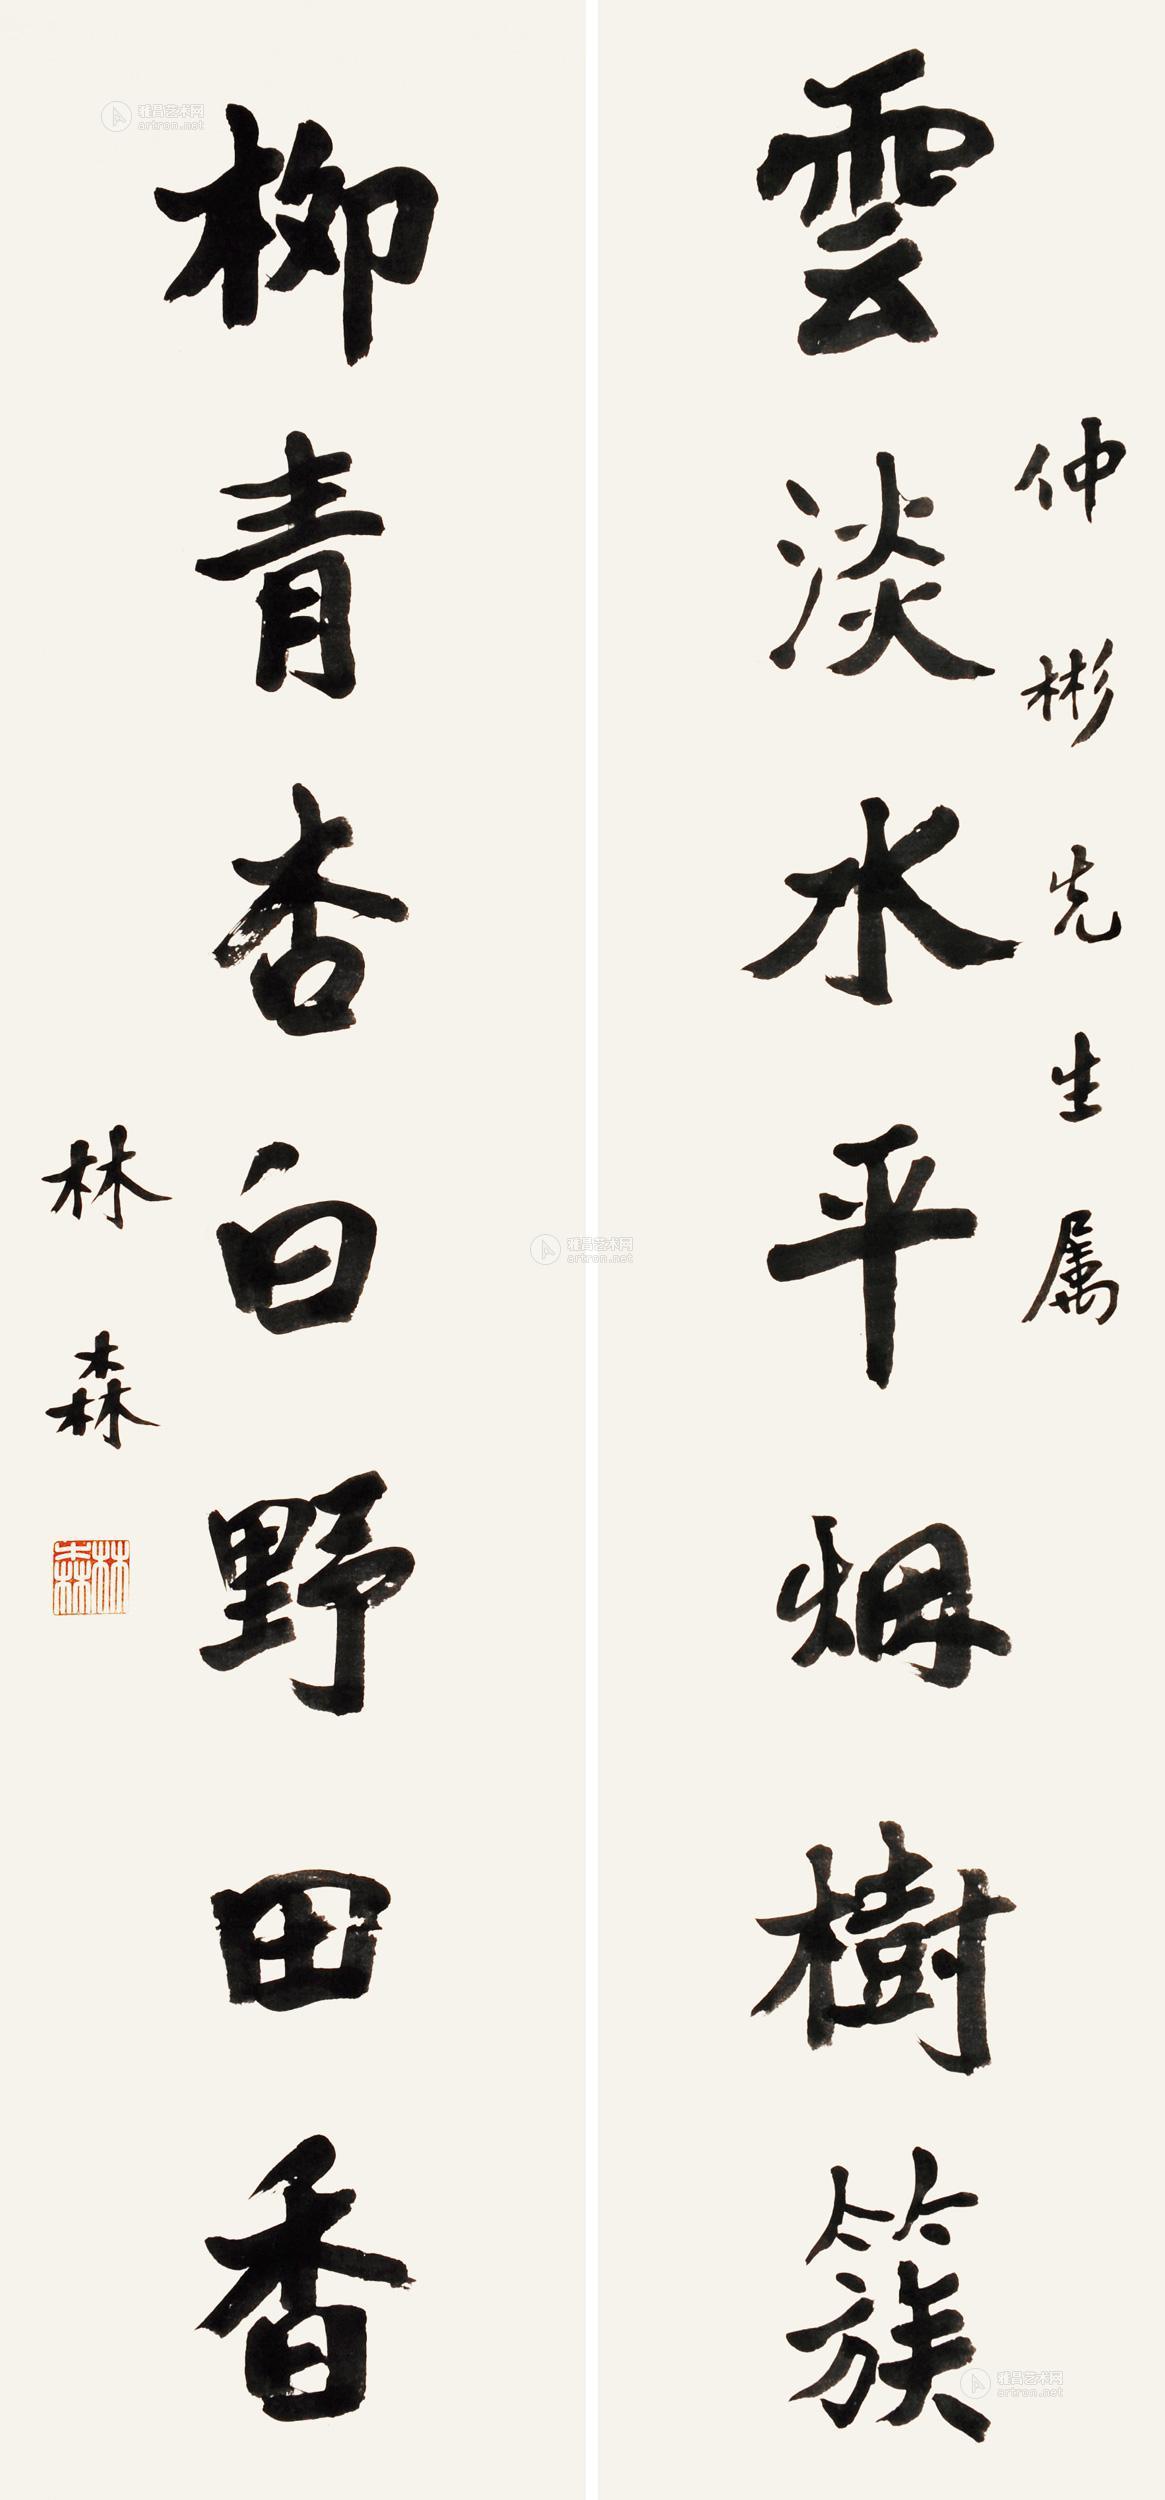 雲淡水平烟樹簇
仲彬先生属
柳青杏白野田香
林森
林森
雅昌艺术网
artron.net
雅昌艺术网
artron.net
雅昌艺术网
artron.net